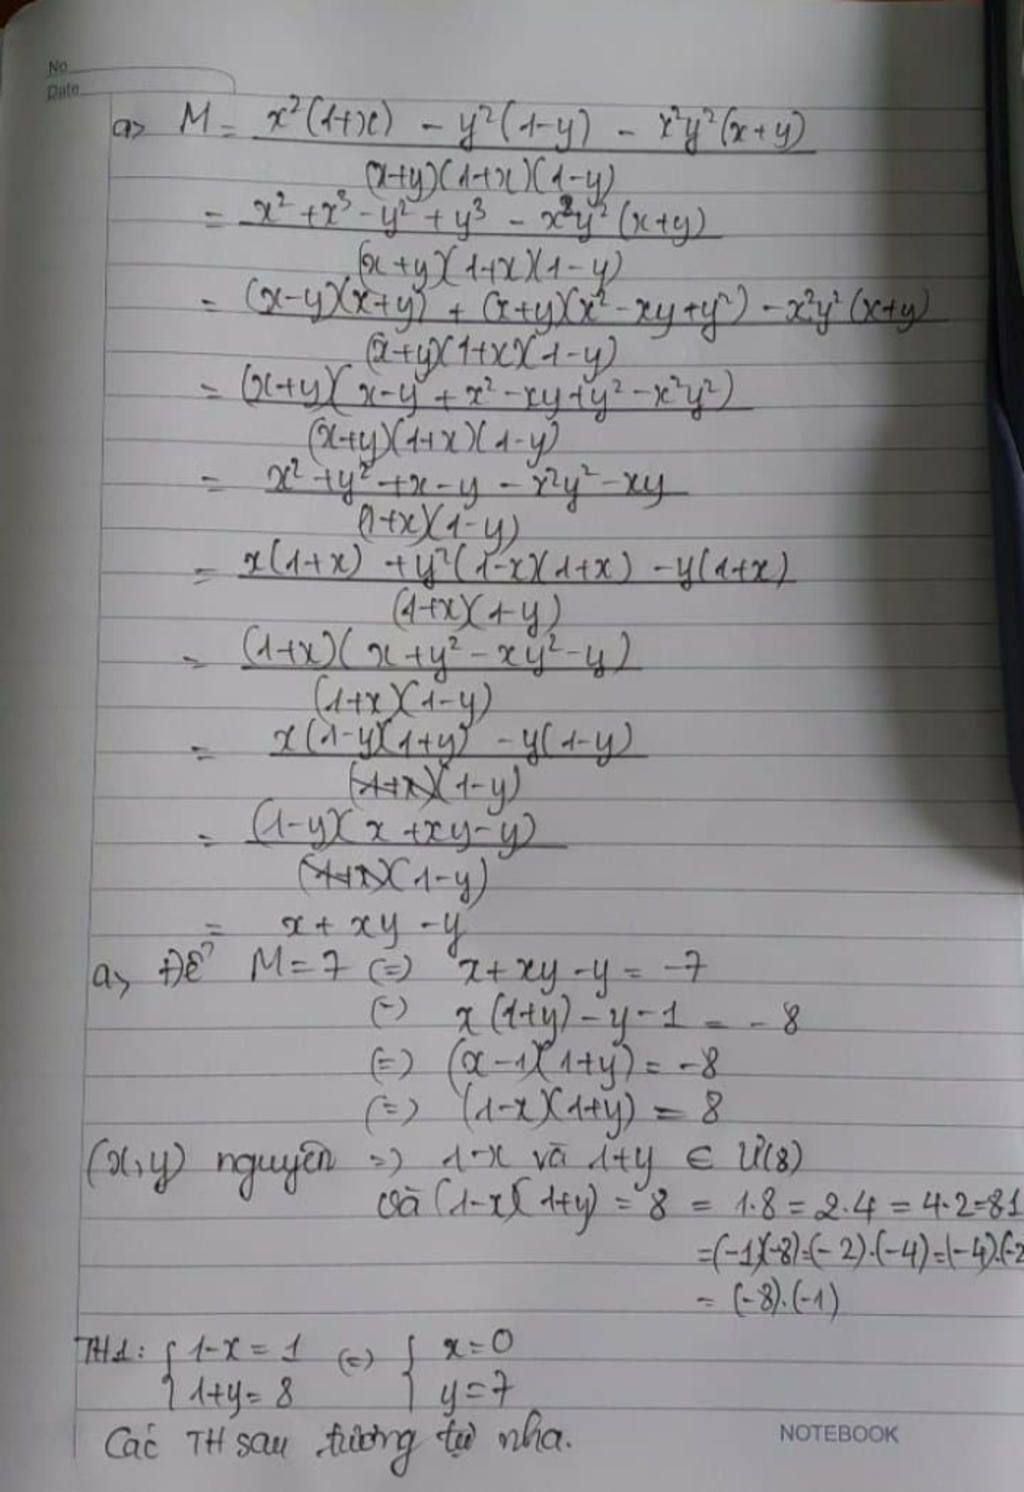 No
Date
a> M = x²(1+x) - y²(1-y) - x²y²(x+y)
(x+y)(1+x)(1-y)
= x² + x³ - y² + y³ - x²y²(x+y)
(x+y)(1+x)(1-y)
= (x-y)(x+y) + (x+y)(x² - xy + y²) - x²y²(x+y)
(x+y)(1+x)(1-y)
= (x+y)(x-y + x² - xy + y² - x²y²)
(x+y)(1+x)(1-y)
= x² + y² + x - y - x²y² - xy
(1+x)(1-y)
= x(1+x) + y²(1-x)(1+x) - y(1+x)
(1+x)(1+y)
= (1+x)(x + y² - xy² - y)
(1+x)(1-y)
= x(1-y)(1+y) - y(1-y)
(1+x)(1-y)
= (1-y)(x + xy - y)
(1+x)(1-y)
= x + xy - y
a, Để M = 7 (=) x + xy - y = -7
(=) x(1+y) - y - 1 = -8
(=) (x-1)(1+y) = -8
(=) (1-x)(1+y) = 8
(x, y) nguyên =) 1-x và 1+y ∈ Ư(8)
và (1-x)(1+y) = 8 = 1.8 = 2.4 = 4.2 = 8.1
= (-1)(-8) = (-2).(-4) = (-4).(-2
= (-8).(-1)
TH1: { 1-x = 1 (=) { x = 0
{ 1+y = 8 { y = 7
Các TH sau tương tự nha.
NOTEBOOK